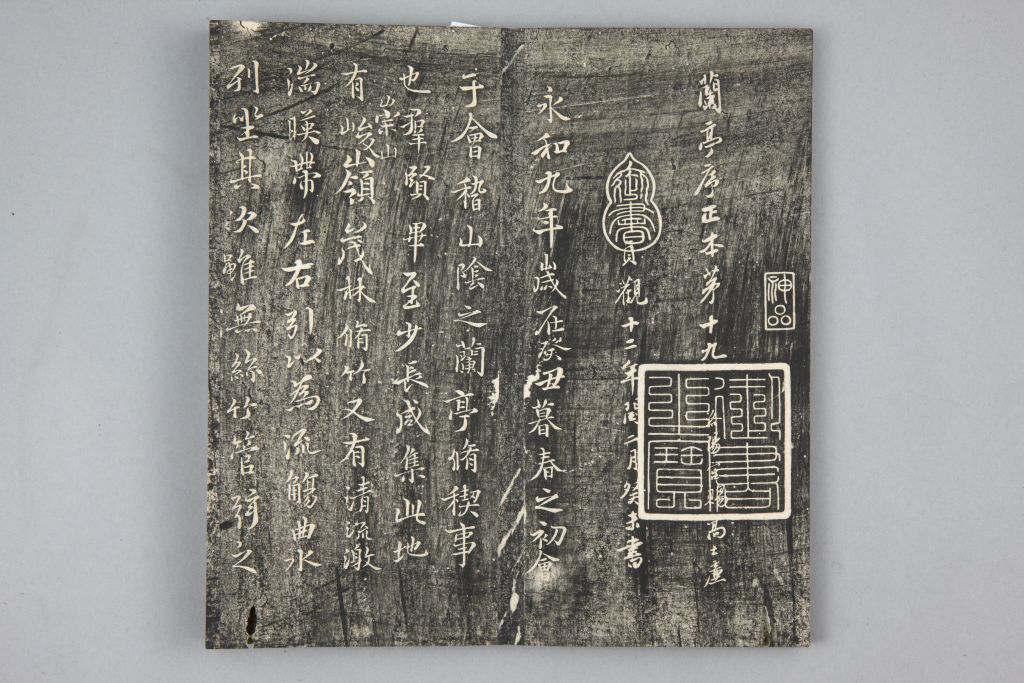 神品
蘭亭序正本第十九
賜高士廉
御書之寶
御書
貞觀十二年閏二月癸未書
永和九年歲在癸丑暮春之初會
于會稽山陰之蘭亭脩稧事
也羣賢畢至少長咸集此地
有崇山峻嶺茂林脩竹又有清流激
湍暎帶左右引以為流觴曲水
列坐其次雖無絲竹管弦之